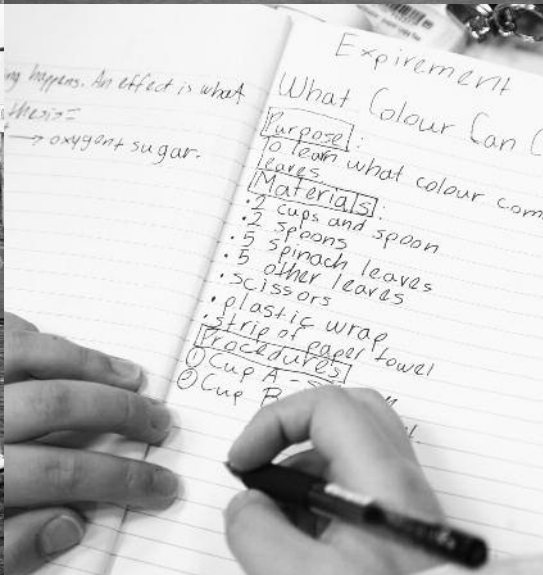 ng happens. An effect is what
thesis=
→ oxygen + sugar.
Expirement
What Colour Can
Purpose:
To learn what colour com
leaves
Materials:
• 2 cups and spoon
• 2 spoons
• 5 spinach leaves
• 5 other leaves
• scissors
• plastic wrap
• strip of paper towel
Procedures
① Cup A -
② Cup B